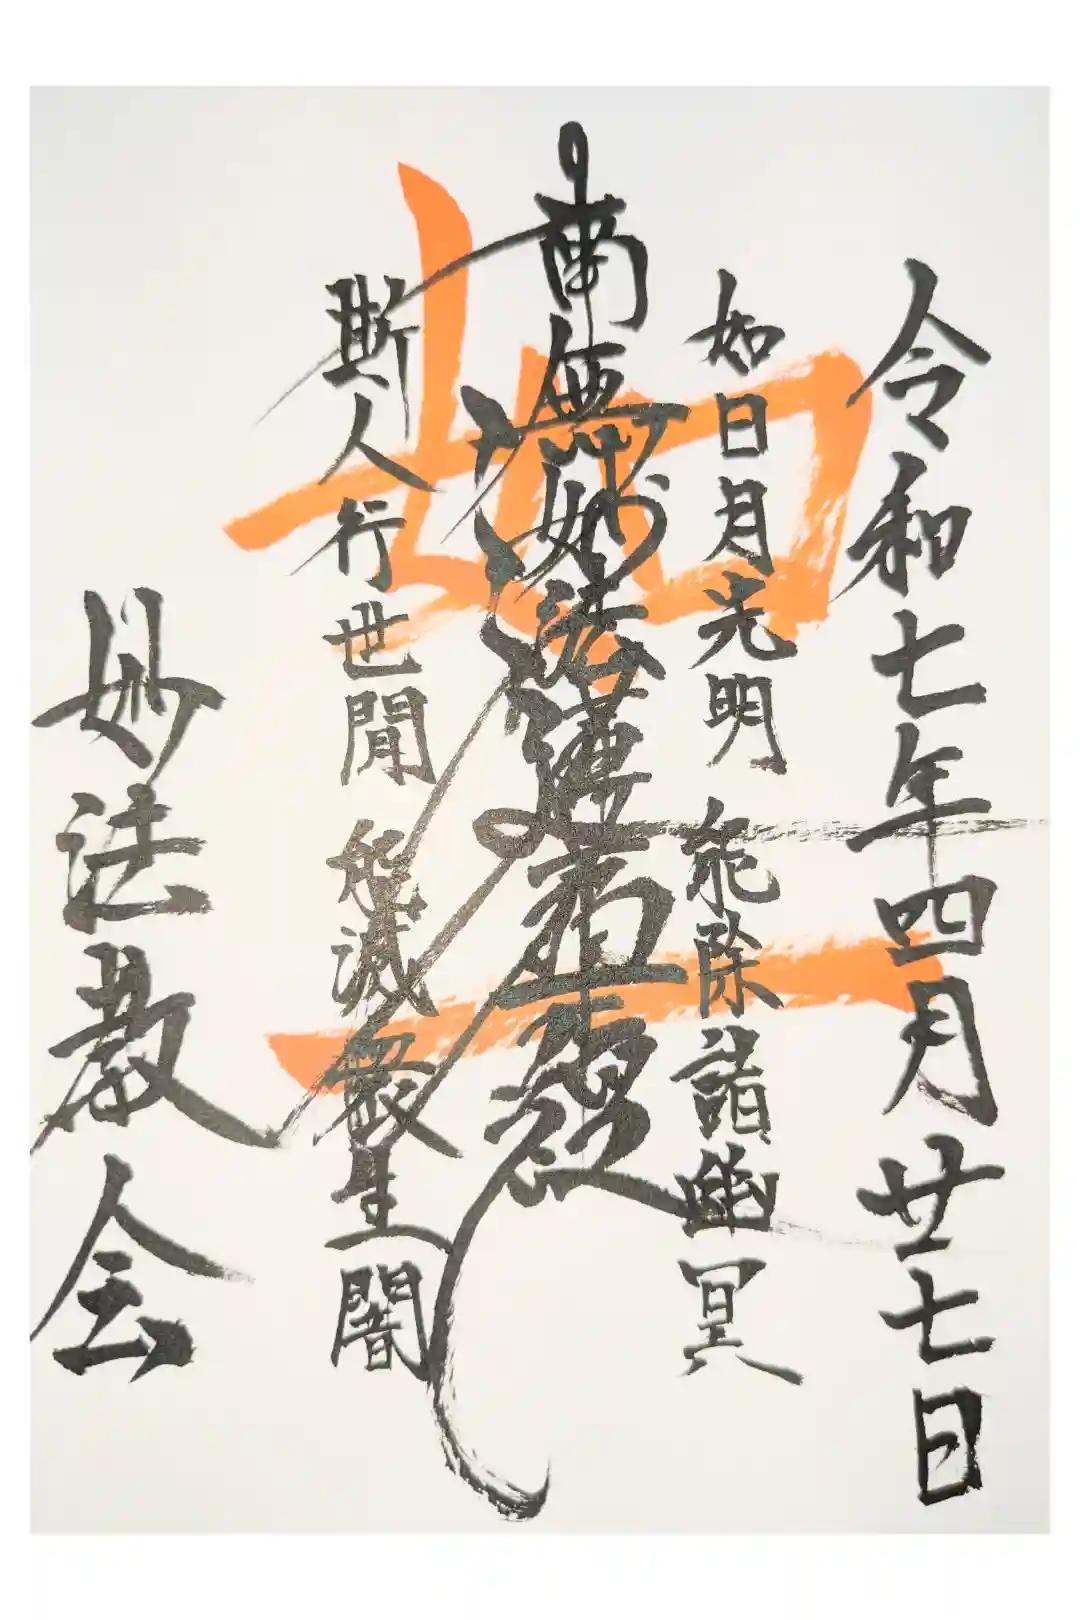 令和七年四月廿七日
如日月光明 能除諸幽冥
南無妙法蓮華経
斯人行世間 能滅衆生闇
妙法教会